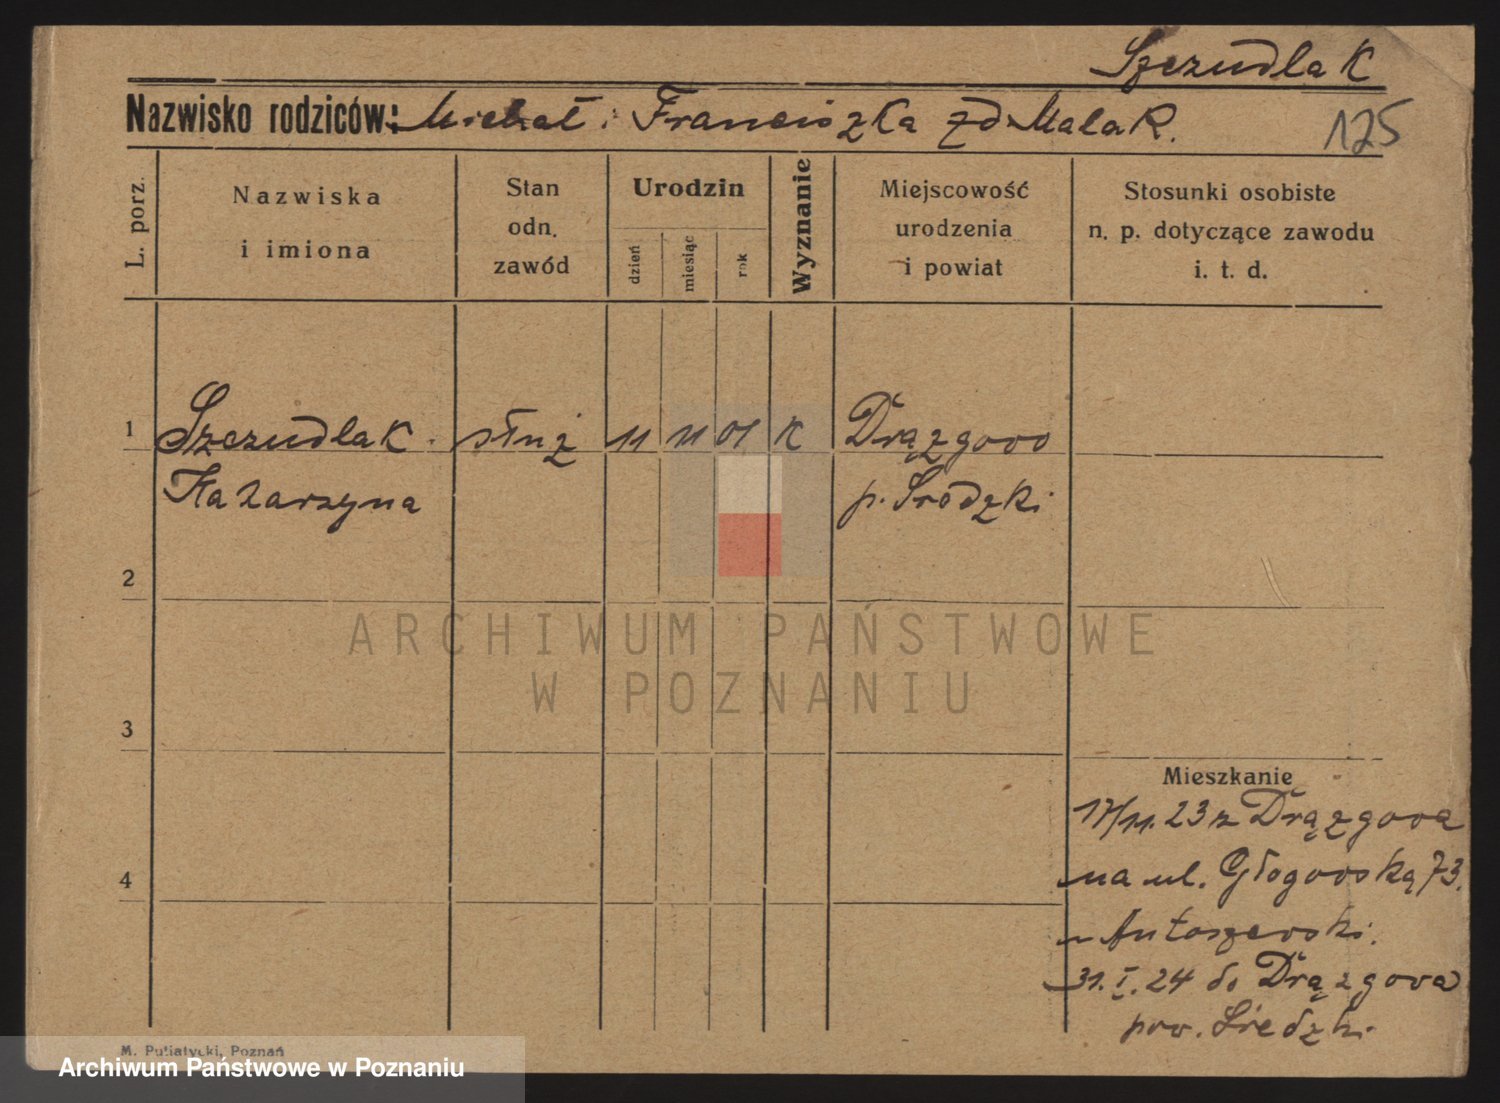 Szczudlak
Nazwisko rodziców: Michał i Franciszka zd Malak.
125
L. porz.
Nazwiska
i imiona
Stan
odn.
zawód
Urodzin
dzień
miesiąc
rok
Wyznanie
Miejscowość
urodzenia
i powiat
Stosunki osobiste
n. p. dotyczące zawodu
i. t. d.
1
Szczudlak
Katarzyna
służ
11
11
01
K
Drązgowo
p. Srodzki
2
3
4
Mieszkanie
17/11. 23 z Drązgowa
na ul. Głogowską 73.
u Antoszewski.
31. I. 24 do Drązgowa
pow. Średzki
M. Putiatycki, Poznań
ARCHIWUM PAŃSTWOWE
W POZNANIU
Archiwum Państwowe w Poznaniu